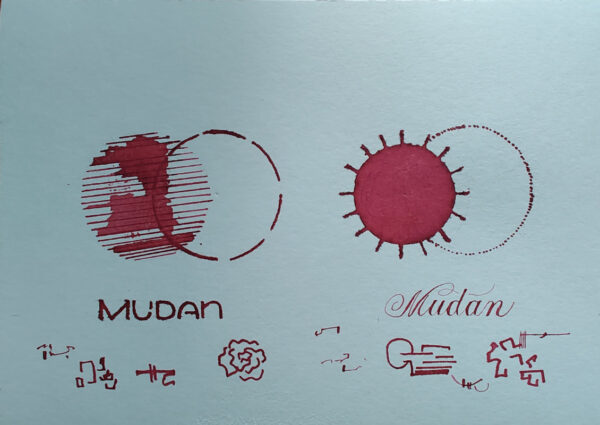 MUDAN
Mudan